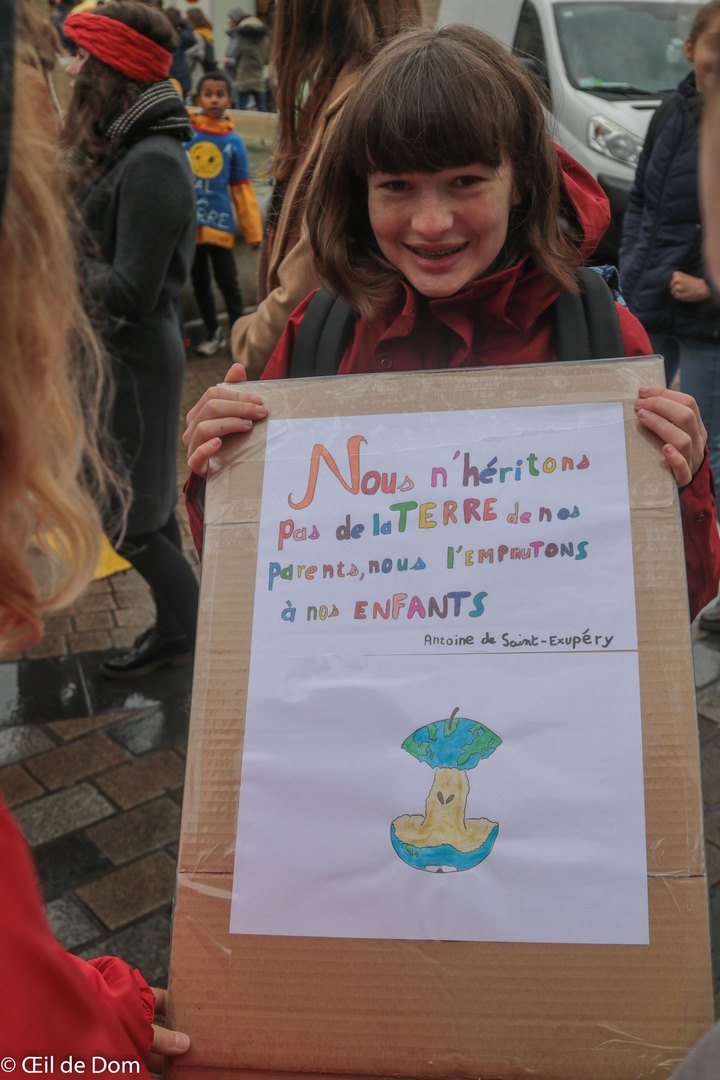 Nous n'héritons
pas de la TERRE de nos
parents, nous l'EMPRUTONS
à nos ENFANTS
Antoine de Saint-Exupéry
© Œil de Dom